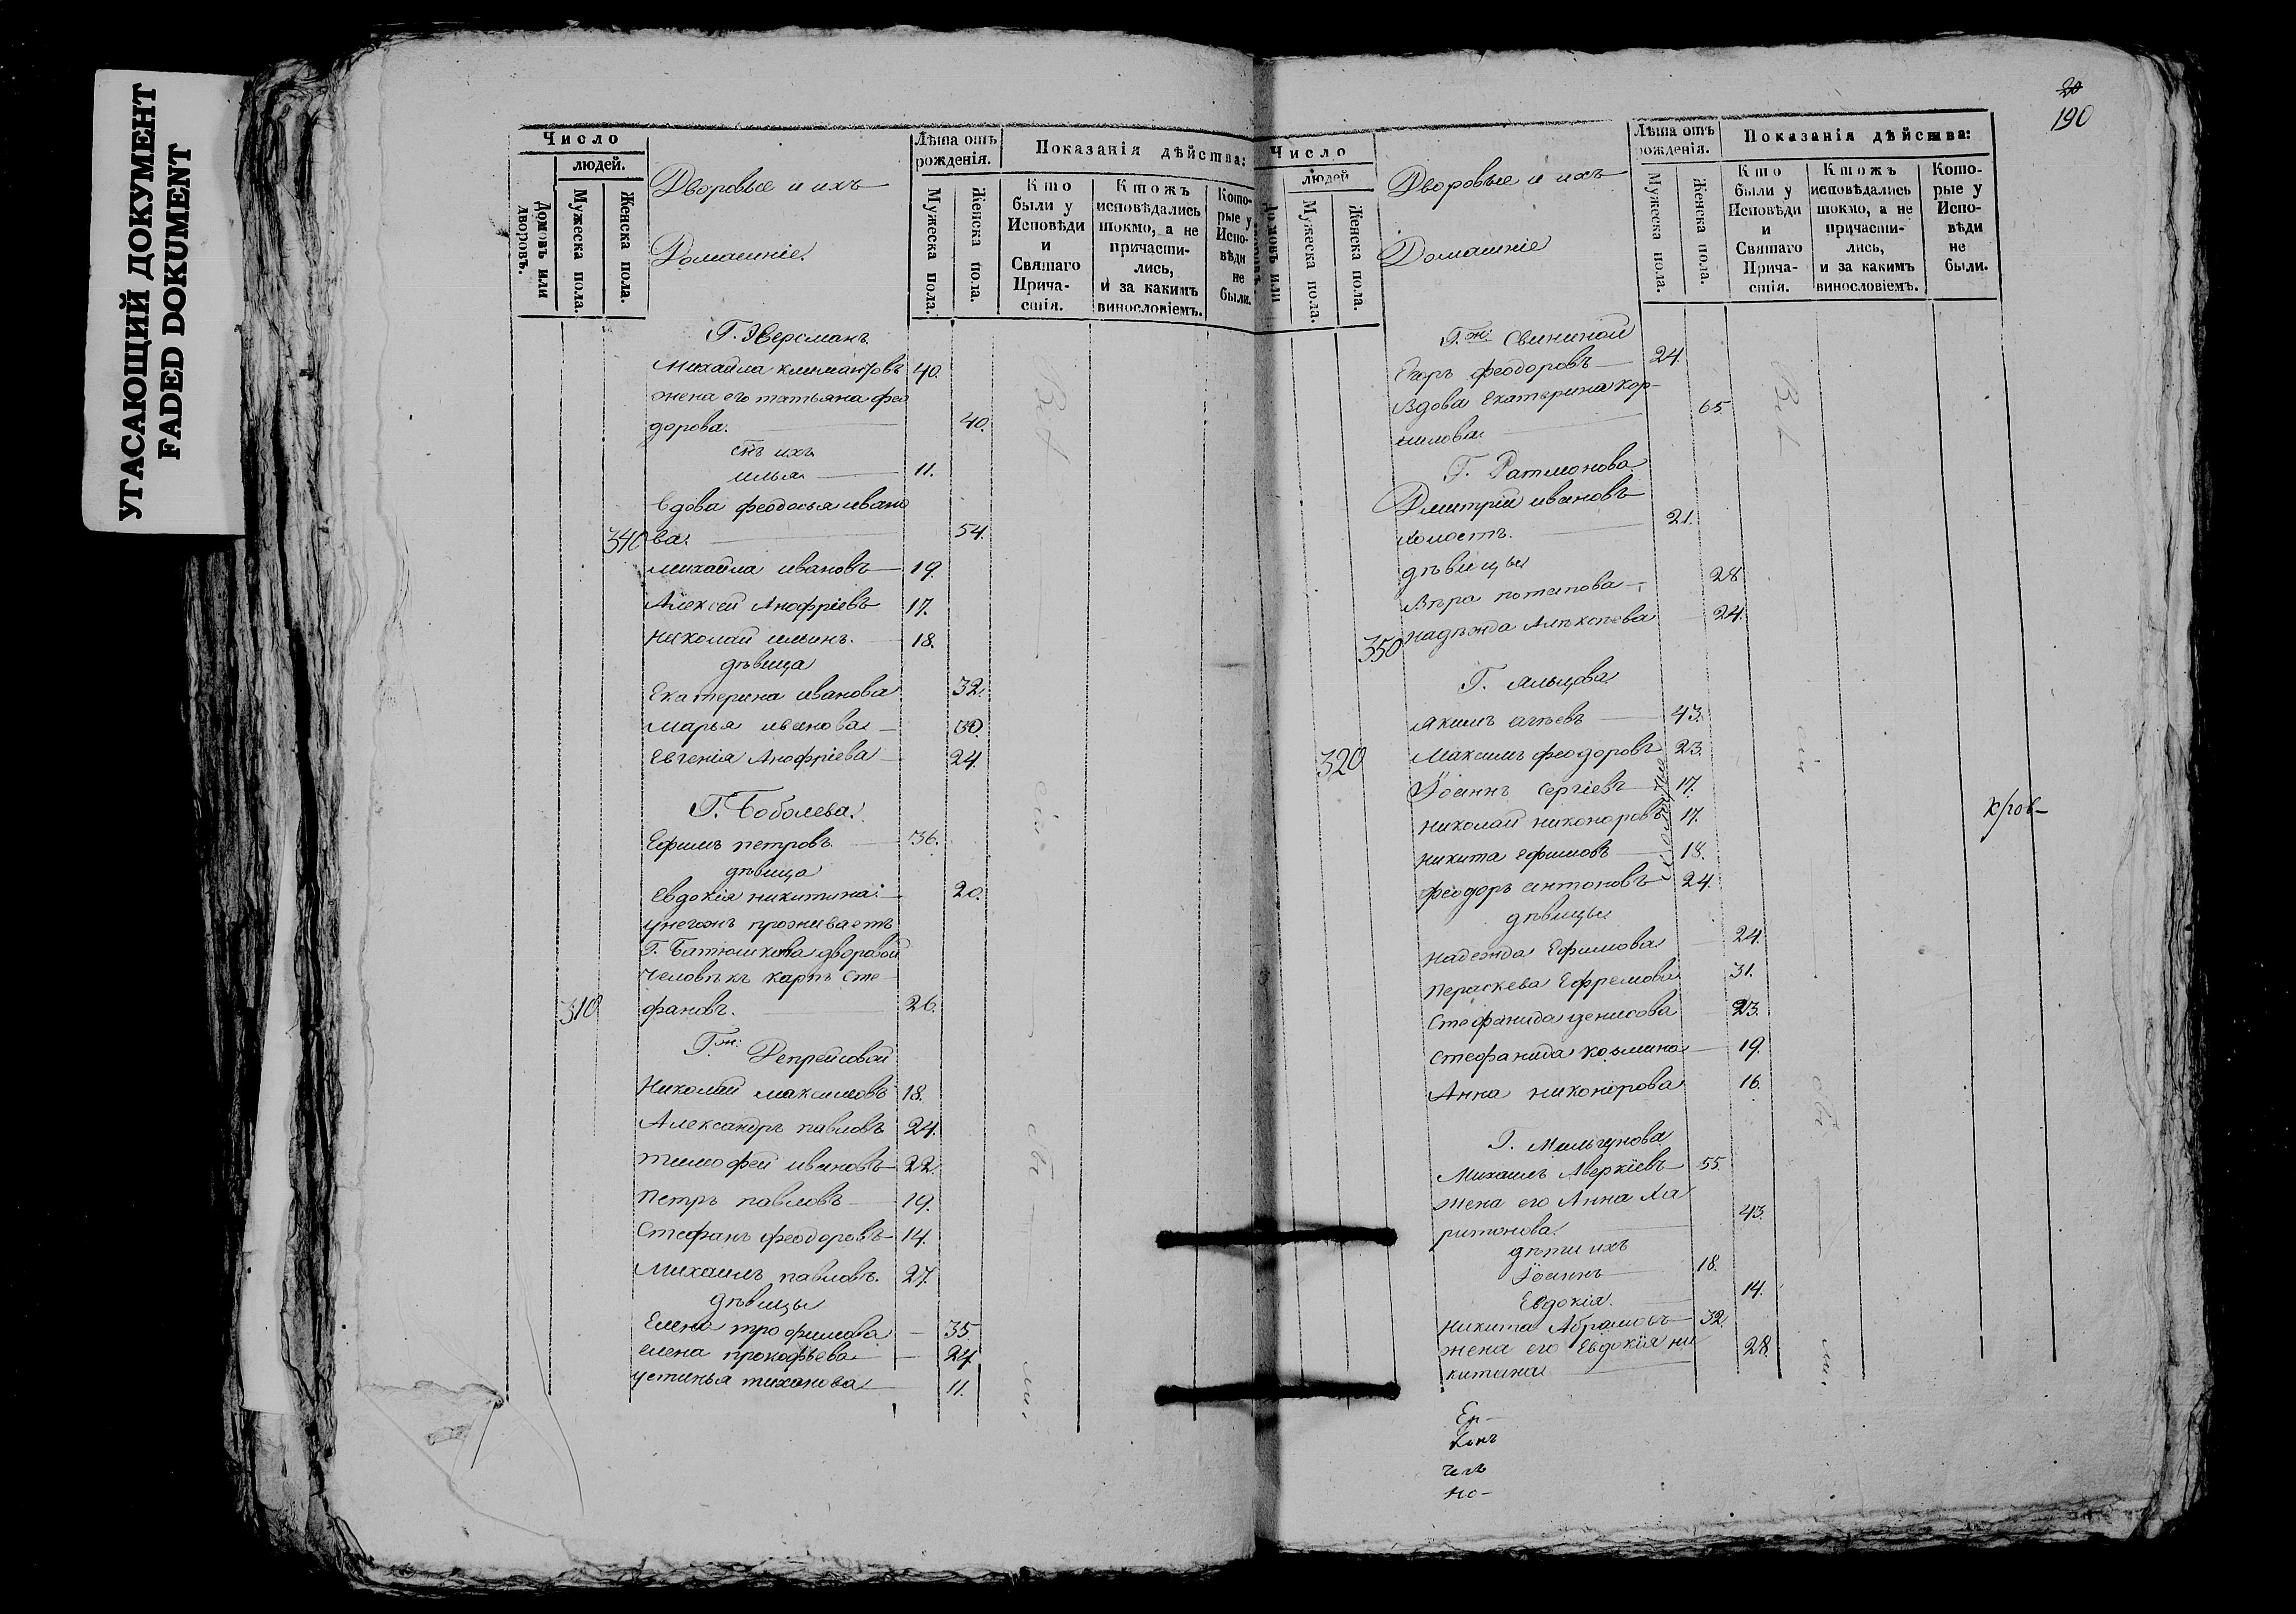 УТАСАЮЩИЙ ДОКУМЕНТ
FADED DOKUMENT
Число
людей.
Домовъ или дворовъ.
Мужеска пола.
Женска пола.
Дворовые и ихъ
Домашніе
Лѣта отъ рожденія.
Мужеска пола.
Женска пола.
Показанія дѣйства:
Кто были у Исповѣди и Святаго Причастія.
Ктожъ исповѣдались токмо, а не причастились, и за какимъ винословіемъ.
Которые у Исповѣди не были.
Г. Эверсманъ
Михайла климантовъ 40.
жена его татьяна фео
дорова. 40.
снъ ихъ
илья 11.
вдова феодосья ивано
340 ва. 54.
михайла ивановъ 19.
Алексей Анофріевъ 17.
николай ильинъ. 18.
дѣвица
Екатерина иванова 32.
марья иванова 30.
Евгенія Анофріева 24.
Г. Боболева.
Ефимъ петровъ. 36.
дѣвица
Евдокія никитина 20.
унегожъ проживаетъ
Г. Батюшкова дворовой
человѣкъ карпъ сте
310 фановъ. 26.
Г.жи Репрейсовой
Николай максимовъ 18.
Александръ павловъ 24.
тимофей ивановъ 22.
петръ павловъ 19.
Стефанъ феодоровъ 14.
Михаилъ павловъ. 27.
дѣвицы
Елена трофимова 35.
елена прокофьева 24
устинья тиханова 11.
190
Число
людей
Домовъ или дворовъ.
Мужеска пола.
Женска пола.
Дворовые и ихъ
Домашніе
Лѣта отъ рожденія.
Мужеска пола.
Женска пола.
Показанія дѣйства:
Кто были у Исповѣди и Святаго Причастія.
Ктожъ исповѣдались токмо, а не причастились, и за какимъ винословіемъ.
Которые у Исповѣди не были.
Г.жи Свининой
Егоръ феодоровъ 24.
Вдова Екатерина кор-
нилова 65
Г. Ратмонова
Дмитрій ивановъ
холостъ. 21.
дѣвицы
Вѣра потапова 28
350 надѣжда Алѣксѣева 24.
Г. Яльцова
Якимъ агѣевъ 43.
320 Максимъ феодоровъ 23.
Іоаннъ Сергіевъ 17.
николай никоноровъ 17.
никита ефимовъ 18.
феодоръ антоновъ 24.
дѣвицы
надежда Ефимова 24.
параскева Ефремова 31.
Стефанида денисова 23.
стефанида козмина 19.
Анна никонорова 16.
Г. Мильгунова
Михаилъ Аверкіевъ 55.
жена его Анна Ха
ритонова. 43.
дѣти ихъ
Іоаннъ 18.
Евдокія. 14.
никита Абрамовъ 32.
жена его Евдокія ни
китина 28.